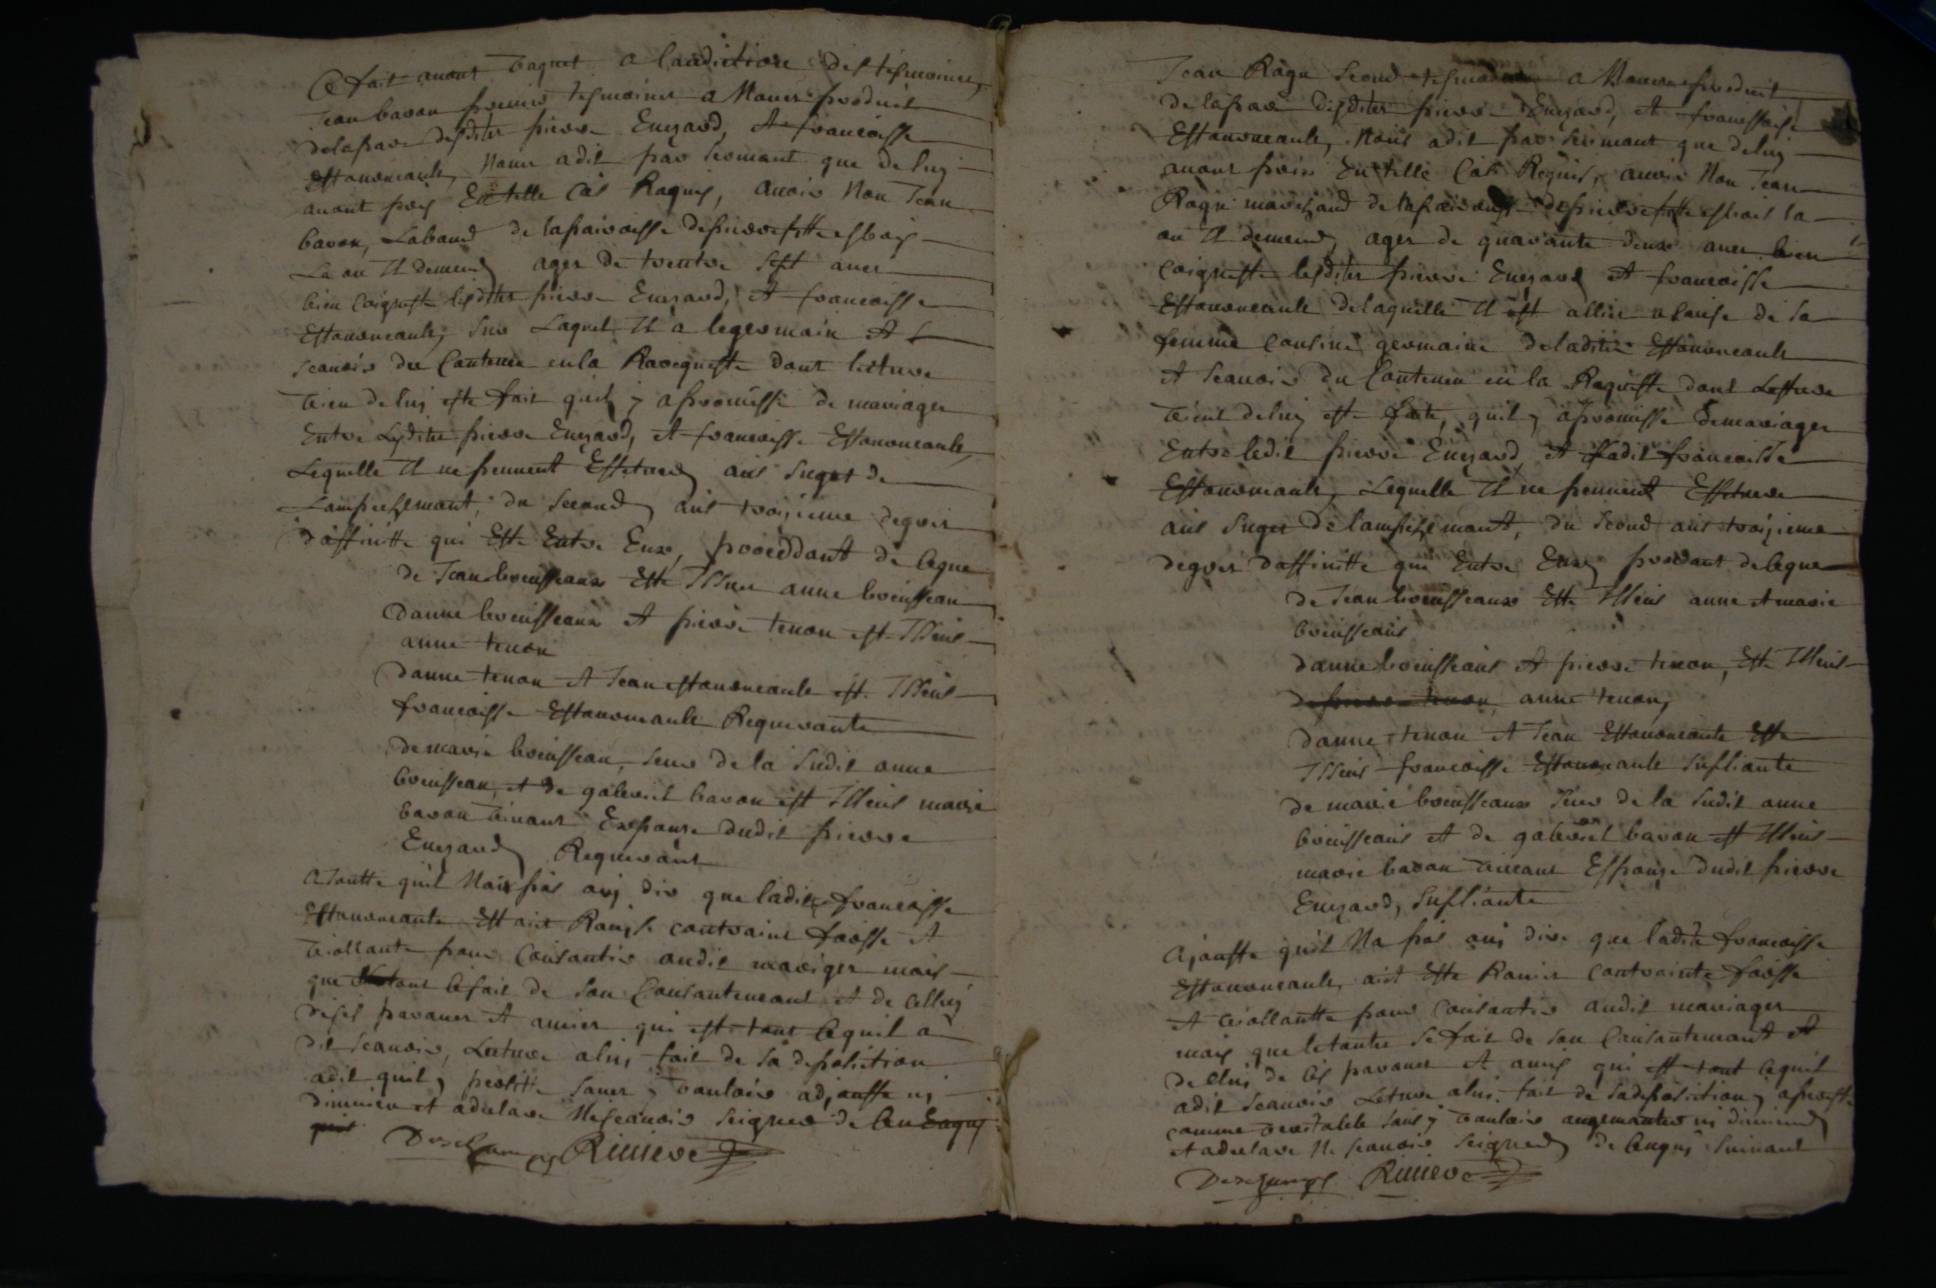 Ce fait avont vaqnet a laudiction des tesmoines
Jean bavon premier tesmoines a Nous produit
de la par desditts pierre Enezard, et francoisse
Estauoneaulx, Nous a dit par sermant que de luy
avont pris En telle Cas Raquis, avoir Non Jean
bavon, Laband de la paroisse de pierrefitte esbois
La ou Il demeure ager de trentre sept ans
bien Coignest lesditts pierre Enezard, et francoisse
Estauoneaulx, sur Laquel Il a le germain et
scauoir du Contenu en la Racqueste dont lecture
vien de luy este fait quil y a promisse de mariager
Entre Lesditts pierre Enezard, et francoisse Estauoneaulx,
Lequelle Il ne peuuent Effetuer aus suget de
Lampechemant, du second aus troisieme degres
d'affinitte qui Este Entre Eux, proceddant de ceque
de Jean boeusseaux Este Issue anne boeusseau
d'anne boeusseaux et pierre tenon est Issus
anne tenon
d'anne tenon et Jean estauoneaulx est Issus
francoisse Estauoneaulx Requerante
de marie boeusseau, seur de la sudit anne
boeusseau, et de gabriel bavon est Issus marie
bavon vivant Expouse dudit pierre
Enezard Requerant
a Joutte quil Na pas ouy dire que ladite francoisse
Estauoneaulx Estait Rauye contrainte foosse et
viollante pour Consantir audit mariger mais
que le tout se fait de son Consantemant et de celluy
de ses paranes et amies qui est tout ce quil a
dit scauoir, Lecture a luy fait de sa deposition
a dit quil y persiste sans y vouloir adjouste ny
diminuer et a declare Ne scauoir seigner de ce Enquis
Deschamps Riuiere
Jean Ragu second tesmoin a Nous produit
de la par desdites pierre Enezard, et francoisse
Estauoneaulx, Nous a dit par sermant que de luy
avont pris En telle Cas Requis, avoir Non Jean
Ragu marchand de la paroisse de pierrefitte esbois la
ou Il demeure, ager de quarante deux ans bien
Coigneste lesdites pierre Enezard et francoisse
Estauoneaulx de laquelle Il est allier a cause de sa
femme Cousine germaine de ladite Estauoneaulx
et scauoir du Contenu en la Requeste dont Lecture
vient de luy este fait, quil y a promisse de mariager
Entre ledit pierre Enezard et ladit francoisse
Estauoneaulx, Lequelle Il ne peuuent Effetuer
aus suget de lampechemant, du second aus troisieme
degres d'affinitte qui Entre Eux procedant de ceque
de Jean boeusseaux Este Issus anne et marie
boeusseaus
d'anne boeusseaus et pierre tenon, Este Issus
de pierre tenon, anne tenon,
d'anne tenon et Jean Estauoneaulx Este
Issus francoisse Estauoneaulx supliante
de marie boeusseaux seur de la sudit anne
boeusseaus et de gabriel bavon est Issus
marie bavon vivant Espouse dudit pierre
Enezard, supliante
ajouste quil Na pas ouy dire que ladite francoisse
Estauoneaulx, ait Este Rauie contrainte foosse
et viollantte pour consantir audit mariager
mais que le toutre se fait de son Consantemant et
de celui de ses paranes et amis qui est tout ce quil
a dit scauoir Lecture a luy fait de sa deposition y a persiste
comme veritable sans y vouloir augmanter ni diminuer
et a declare Ne scauoir seigner de ce anquis suivant
Deschamps Riuiere